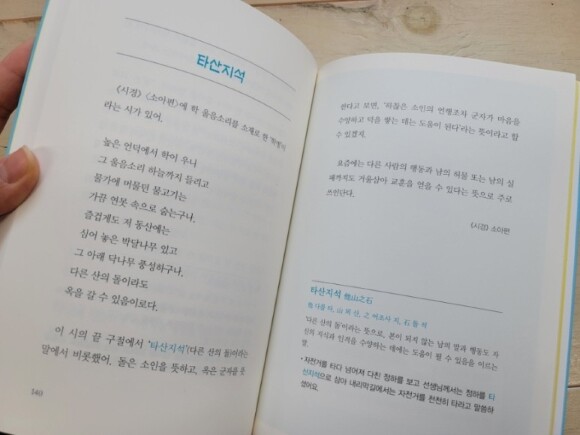 타산지석
《시집》〈소아편〉에 학 울음소리를 소재로 한
라는 시가 있어.
높은 언덕에서 학이 우니
그 울음소리 하늘까지 들리고
물가에 머물던 물고기는
가끔 연못 속으로 숨는구나.
즐겁게도 저 동산에는
심어 놓은 박달나무 있고
그 아래 닥나무 풍성하구나.
다른 산의 돌이라도
옥을 갈 수 있음이로다.
이 시의 끝 구절에서 '타산지석'(다른 산의 돌)이라는
말에서 비롯했어. 돌은 소인을 뜻하고, 옥은 군자를 뜻
340
한다고 보면, '하찮은 소인의 언행조차 군자가 마음을
수양하고 덕을 쌓는 데는 도움이 된다'라는 뜻이라고 할
수 있겠지.
요즘에는 다른 사람의 행동과 남의 허물 또는 남의 실
패까지도 거울삼아 교훈을 얻을 수 있다는 뜻으로 주로
쓰인단다.
《시집》 소아편
타산지석 他山之石
他 다를 타, 山 뫼 산, 之 어조사 지, 石 돌 석
'다른 산의 돌'이라는 뜻으로, 본이 되지 않는 남의 말과 행동도 자
신의 지식과 인격을 수양하는 데에는 도움이 될 수 있음을 이르는
말.
• 자전거를 타다 넘어져 다친 청하를 보고 선생님께서는 청하를 타
산지석으로 삼아 내리막길에서는 자전거를 천천히 타라고 말씀하
셨어요.